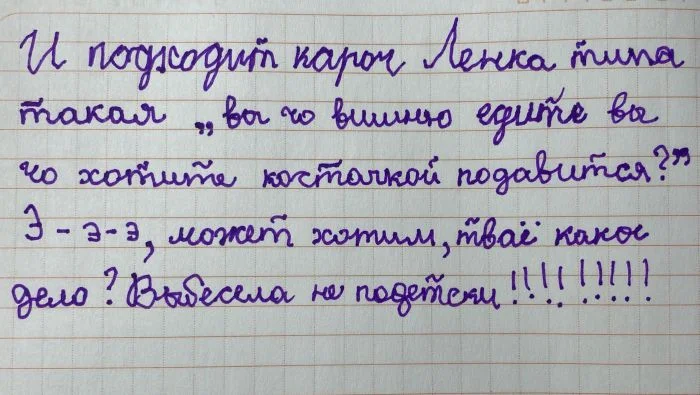 И подходит кароч Ленка типа
такая „вы чо вишню едите вы
чо хотите косточкой подавится?”
Э-э-э, может хотим, тваё какое
дело? Выбесела не подетски!!!!!!!!!